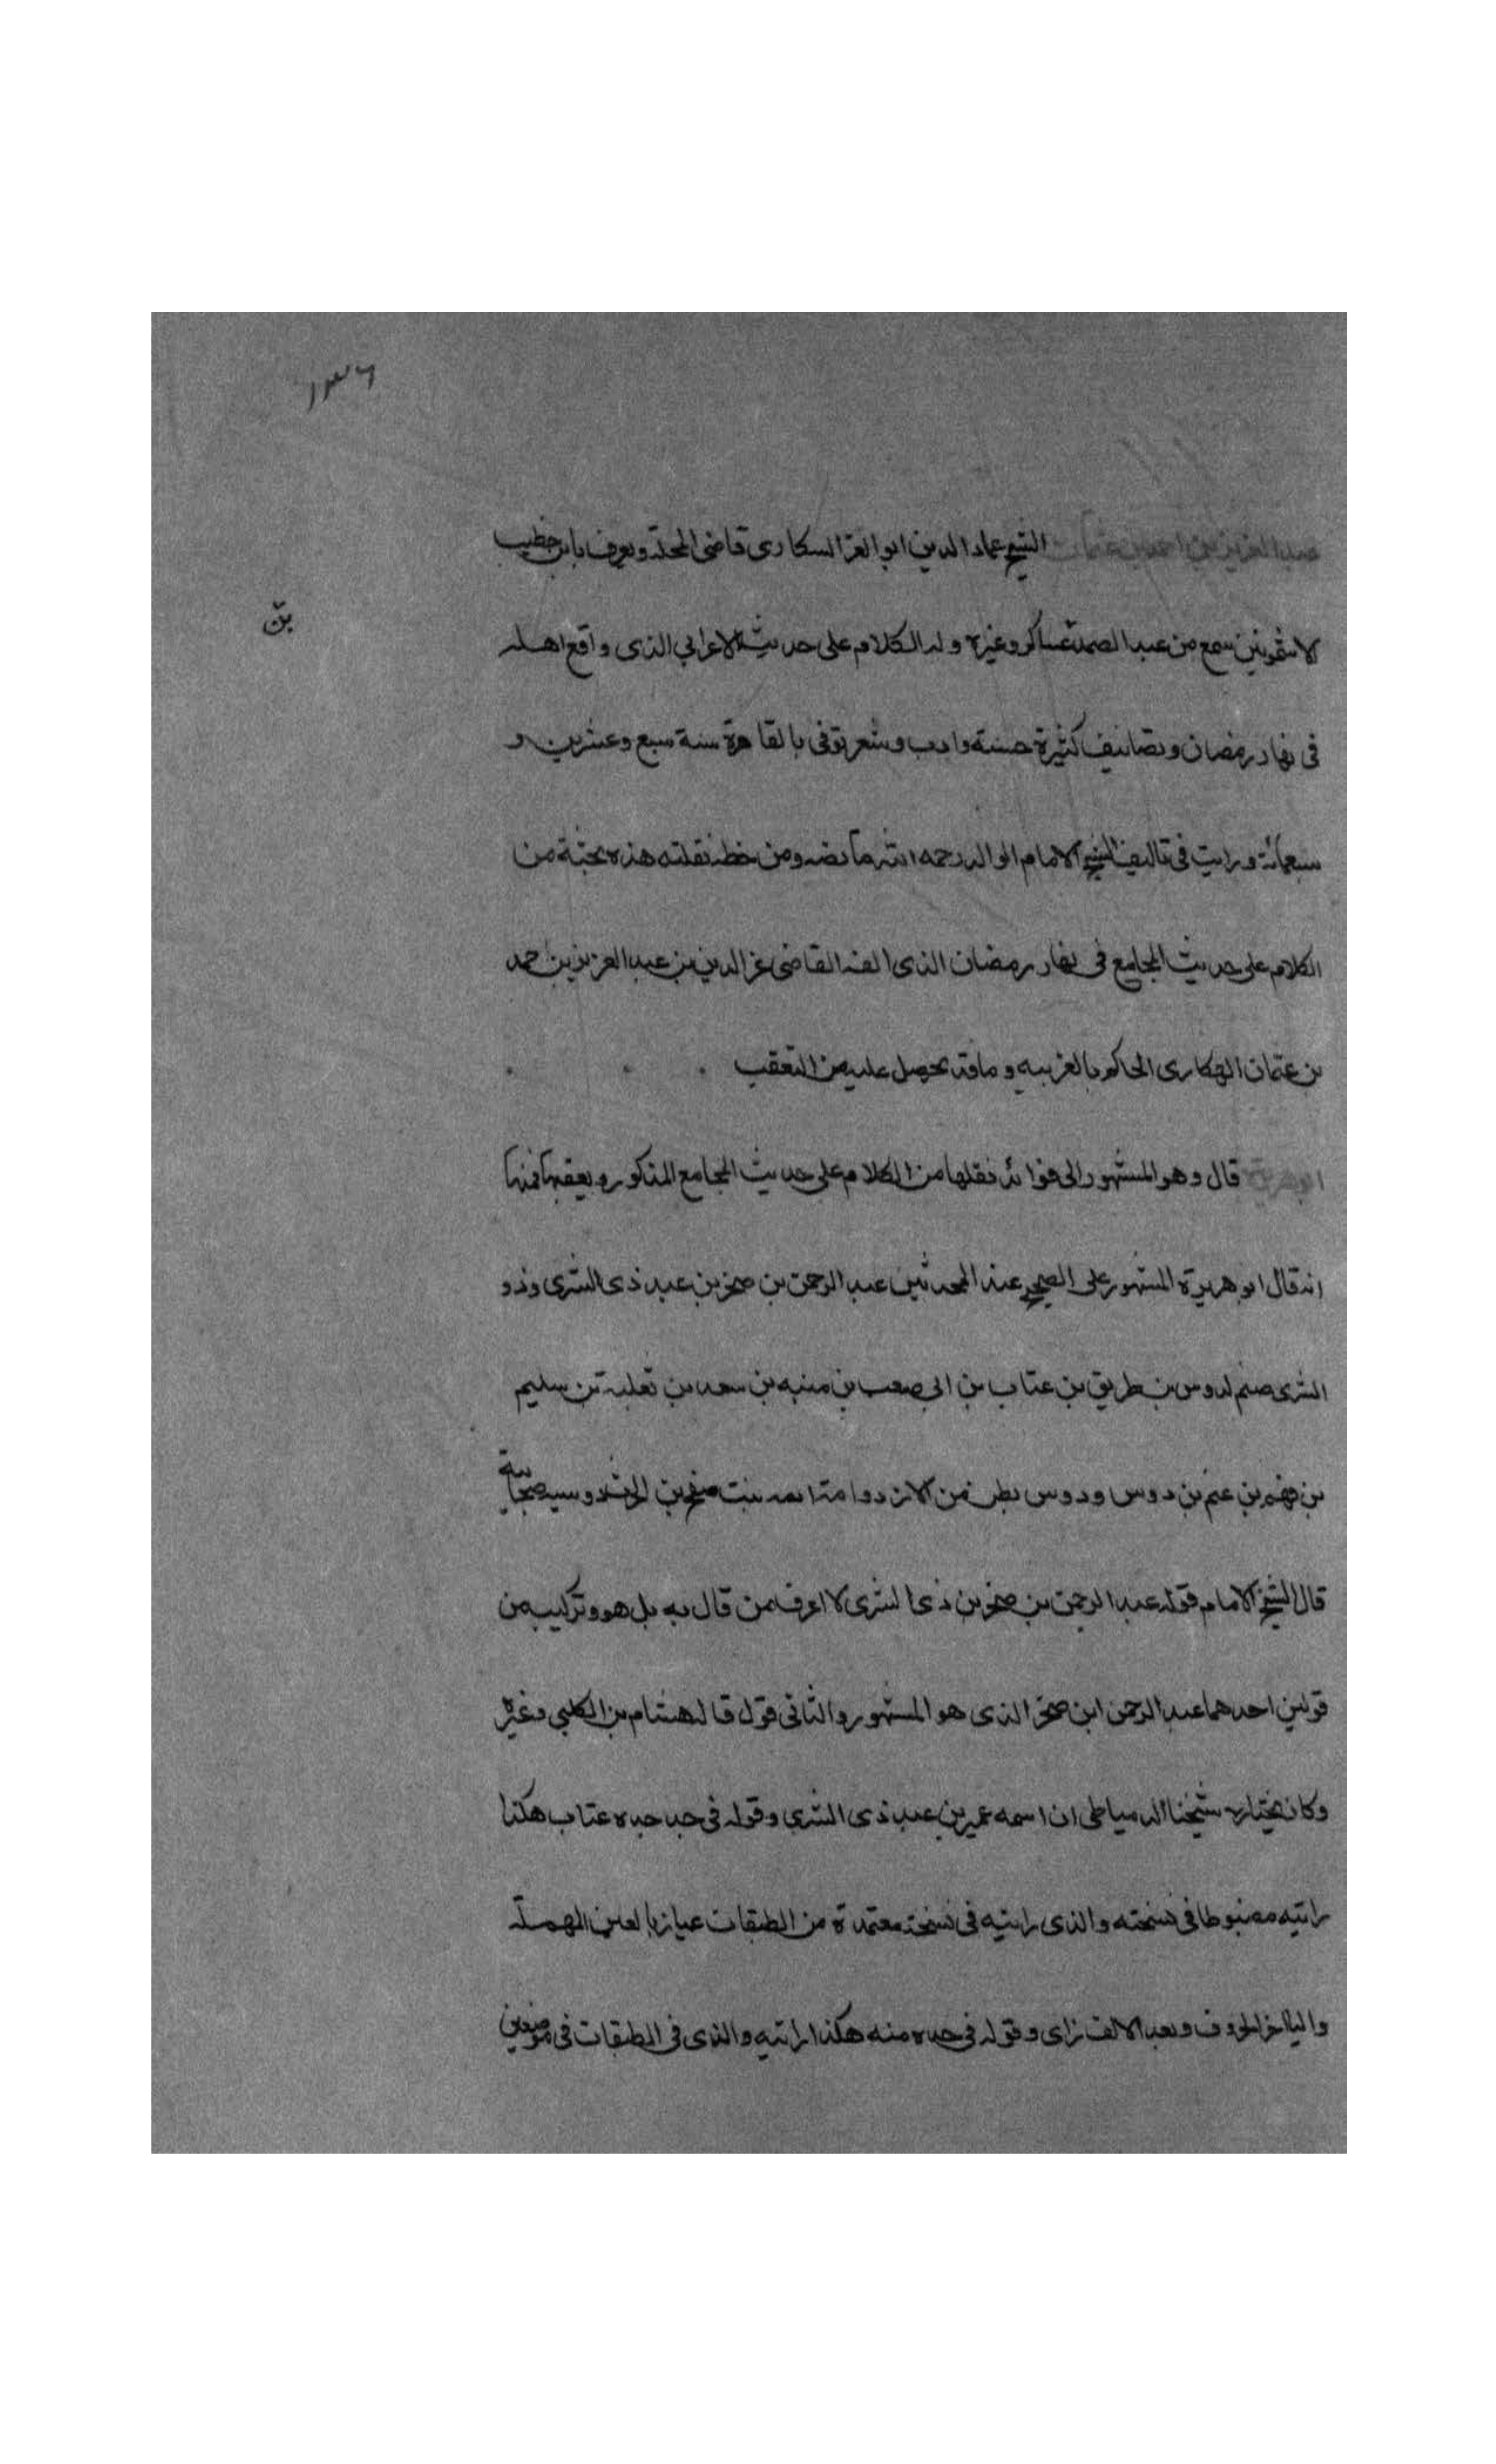 ١٣٦
عبد العزيز بن احمد بن عثمان الشيخ عماد الدين ابو العز السكارى قاضى المحلة ويعرف بابن خطيب
بن
الاشمونين سمع من عبد الصمد عساكر وغيره وله الكلام على حديث الاعرابي الذى واقع اهله
فى نهار رمضان وتصانيف كثيرة حسنة وادب وشعر توفى بالقاهرة سنة سبع وعشرين و
سبعمائة ورايت فى تاليف الشيخ الامام الوالد رحمه الله ما نصه ومن خطه نقلته هذه نخبة من
الكلام على حديث المجامع فى نهار رمضان الذى الفه القاضى عز الدين بن عبد العزيز بن احمد
بن عثمان الهكارى الحاكم بالغربيه وما قد يحصل عليه من التعقب
ابو هريرة قال وهو المشهور الى فوائد نقلها من الكلام على حديث المجامع المذكور ويعقبها فمنها
انه قال ابو هريرة المشهور على الصحيح عند المحدثين عبد الرحمن بن صخر بن عبد ذى الشرى وذو
الشرى صنم لدوس بن طريق بن عتاب بن ابى صعب بن منبه بن سعد بن ثعلبة بن سليم
بن فهم بن غنم بن دوس ودوس بطن من الازد وامه اميه بنت صفيح بن الحرث دوسيه صحابية
قال الشيخ الامام قوله عبد الرحمن بن صخر بن ذى الشرى لا اعرف من قال به بل هو وتركيب من
قولين احدهما عبد الرحمن ابن صخر الذى هو المشهور والثانى قول قاله هشام بن الكلبي وغيره
وكان يختاره شيخنا الدمياطى ان اسمه عمير بن عبد ذى الشرى وقوله فى جد جده عتاب هكذا
رايته مضبوطا فى نسخته والذى رايته فى نسخة معتمدة من الطبقات عياز بالعين المهملة
واليا اخر الحروف وبعد الالف زاى وقوله فى جده منبه هكذا رايته والذى فى الطبقات فى موضعين